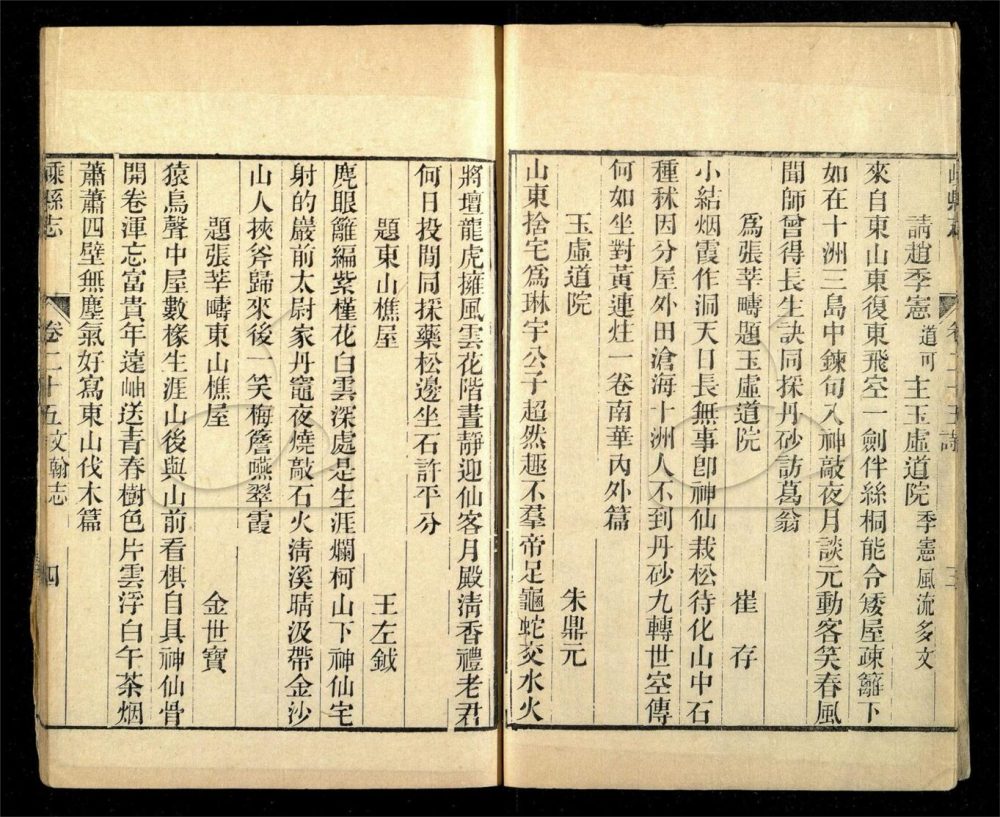 嵊縣志 卷二十五 詩 三
請趙季憲道可主玉虛道院季憲風流多文
來自東山東復東飛空一劍伴絲桐能令矮屋疎籬下
如在十洲三島中鍊句入神敲夜月談元動客笑春風
聞師曾得長生訣同採丹砂訪葛翁
爲張莘疇題玉虛道院 崔存
小結烟霞作洞天日長無事卽神仙栽松待化山中石
種秫因分屋外田滄海十洲人不到丹砂九轉世空傳
何如坐對黃連炷一卷南華內外篇
玉虛道院 朱鼎元
山東捨宅爲琳宇公子超然趣不羣帝足龜蛇交水火
將壇龍虎擁風雲花階晝靜迎仙客月殿淸香禮老君
何日投閒同採藥松邊坐石許平分
題東山樵屋 王左鉞
麂眼籬編紫槿花白雲深處是生涯爛柯山下神仙宅
射的巖前太尉家丹竈夜燒敲石火淸溪晴汲帶金沙
山人挾斧歸來後一笑梅簷嚥翠霞
題張莘疇東山樵屋 金世寶
猿鳥聲中屋數椽生涯山後與山前看棋自具神仙骨
開卷渾忘富貴年遠岫送青春樹色片雲浮白午茶烟
蕭蕭四壁無塵氣好寫東山伐木篇
嵊縣志 卷二十五 文翰志 四